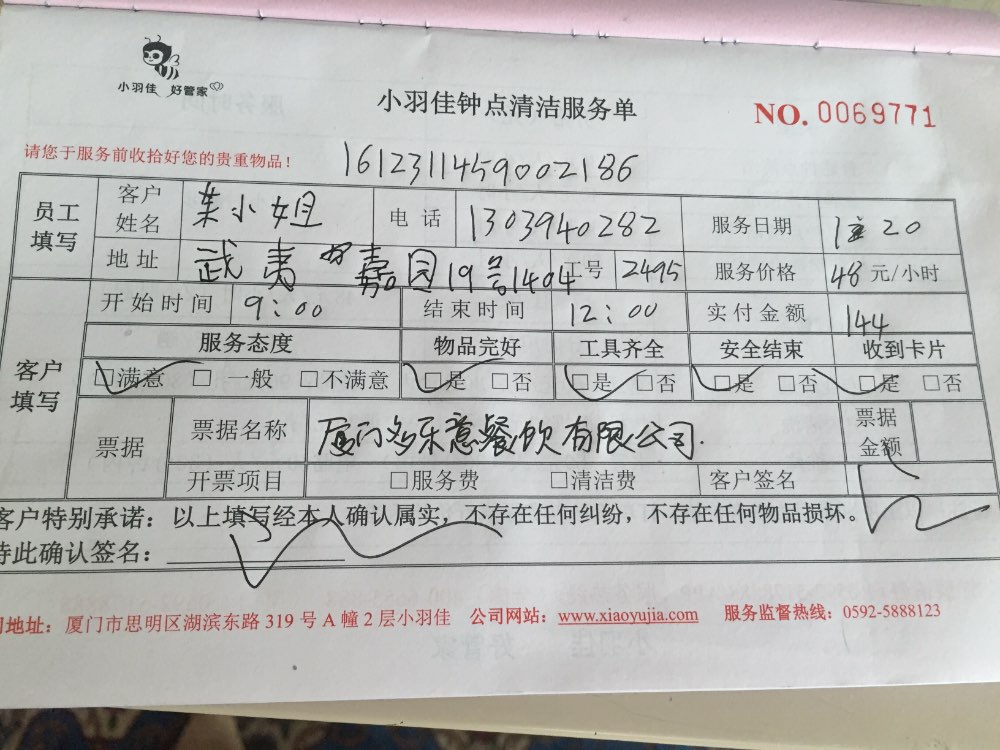 小羽佳 好管家
小羽佳钟点清洁服务单
NO. 0069771
请您于服务前收拾好您的贵重物品!
1612311459002186
员工填写 客户姓名 朱小姐 电话 1303940282 服务日期 20
地址 武夷嘉园19号1404 工号 2495 服务价格 48 元/小时
客户填写 开始时间 9:00 结束时间 12:00 实付金额 144
服务态度 物品完好 工具齐全 安全结束 收到卡片
□满意 □一般 □不满意 □是 □否 □是 □否 □是 □否 □是 □否
票据 票据名称 厦门多乐意餐饮有限公司. 票据金额
开票项目 □服务费 □清洁费 客户签名
客户特别承诺:以上填写经本人确认属实,不存在任何纠纷,不存在任何物品损坏。
特此确认签名:
地址:厦门市思明区湖滨东路 319 号 A 幢 2 层小羽佳 公司网站:www.xiaoyujia.com 服务监督热线:0592-5888123